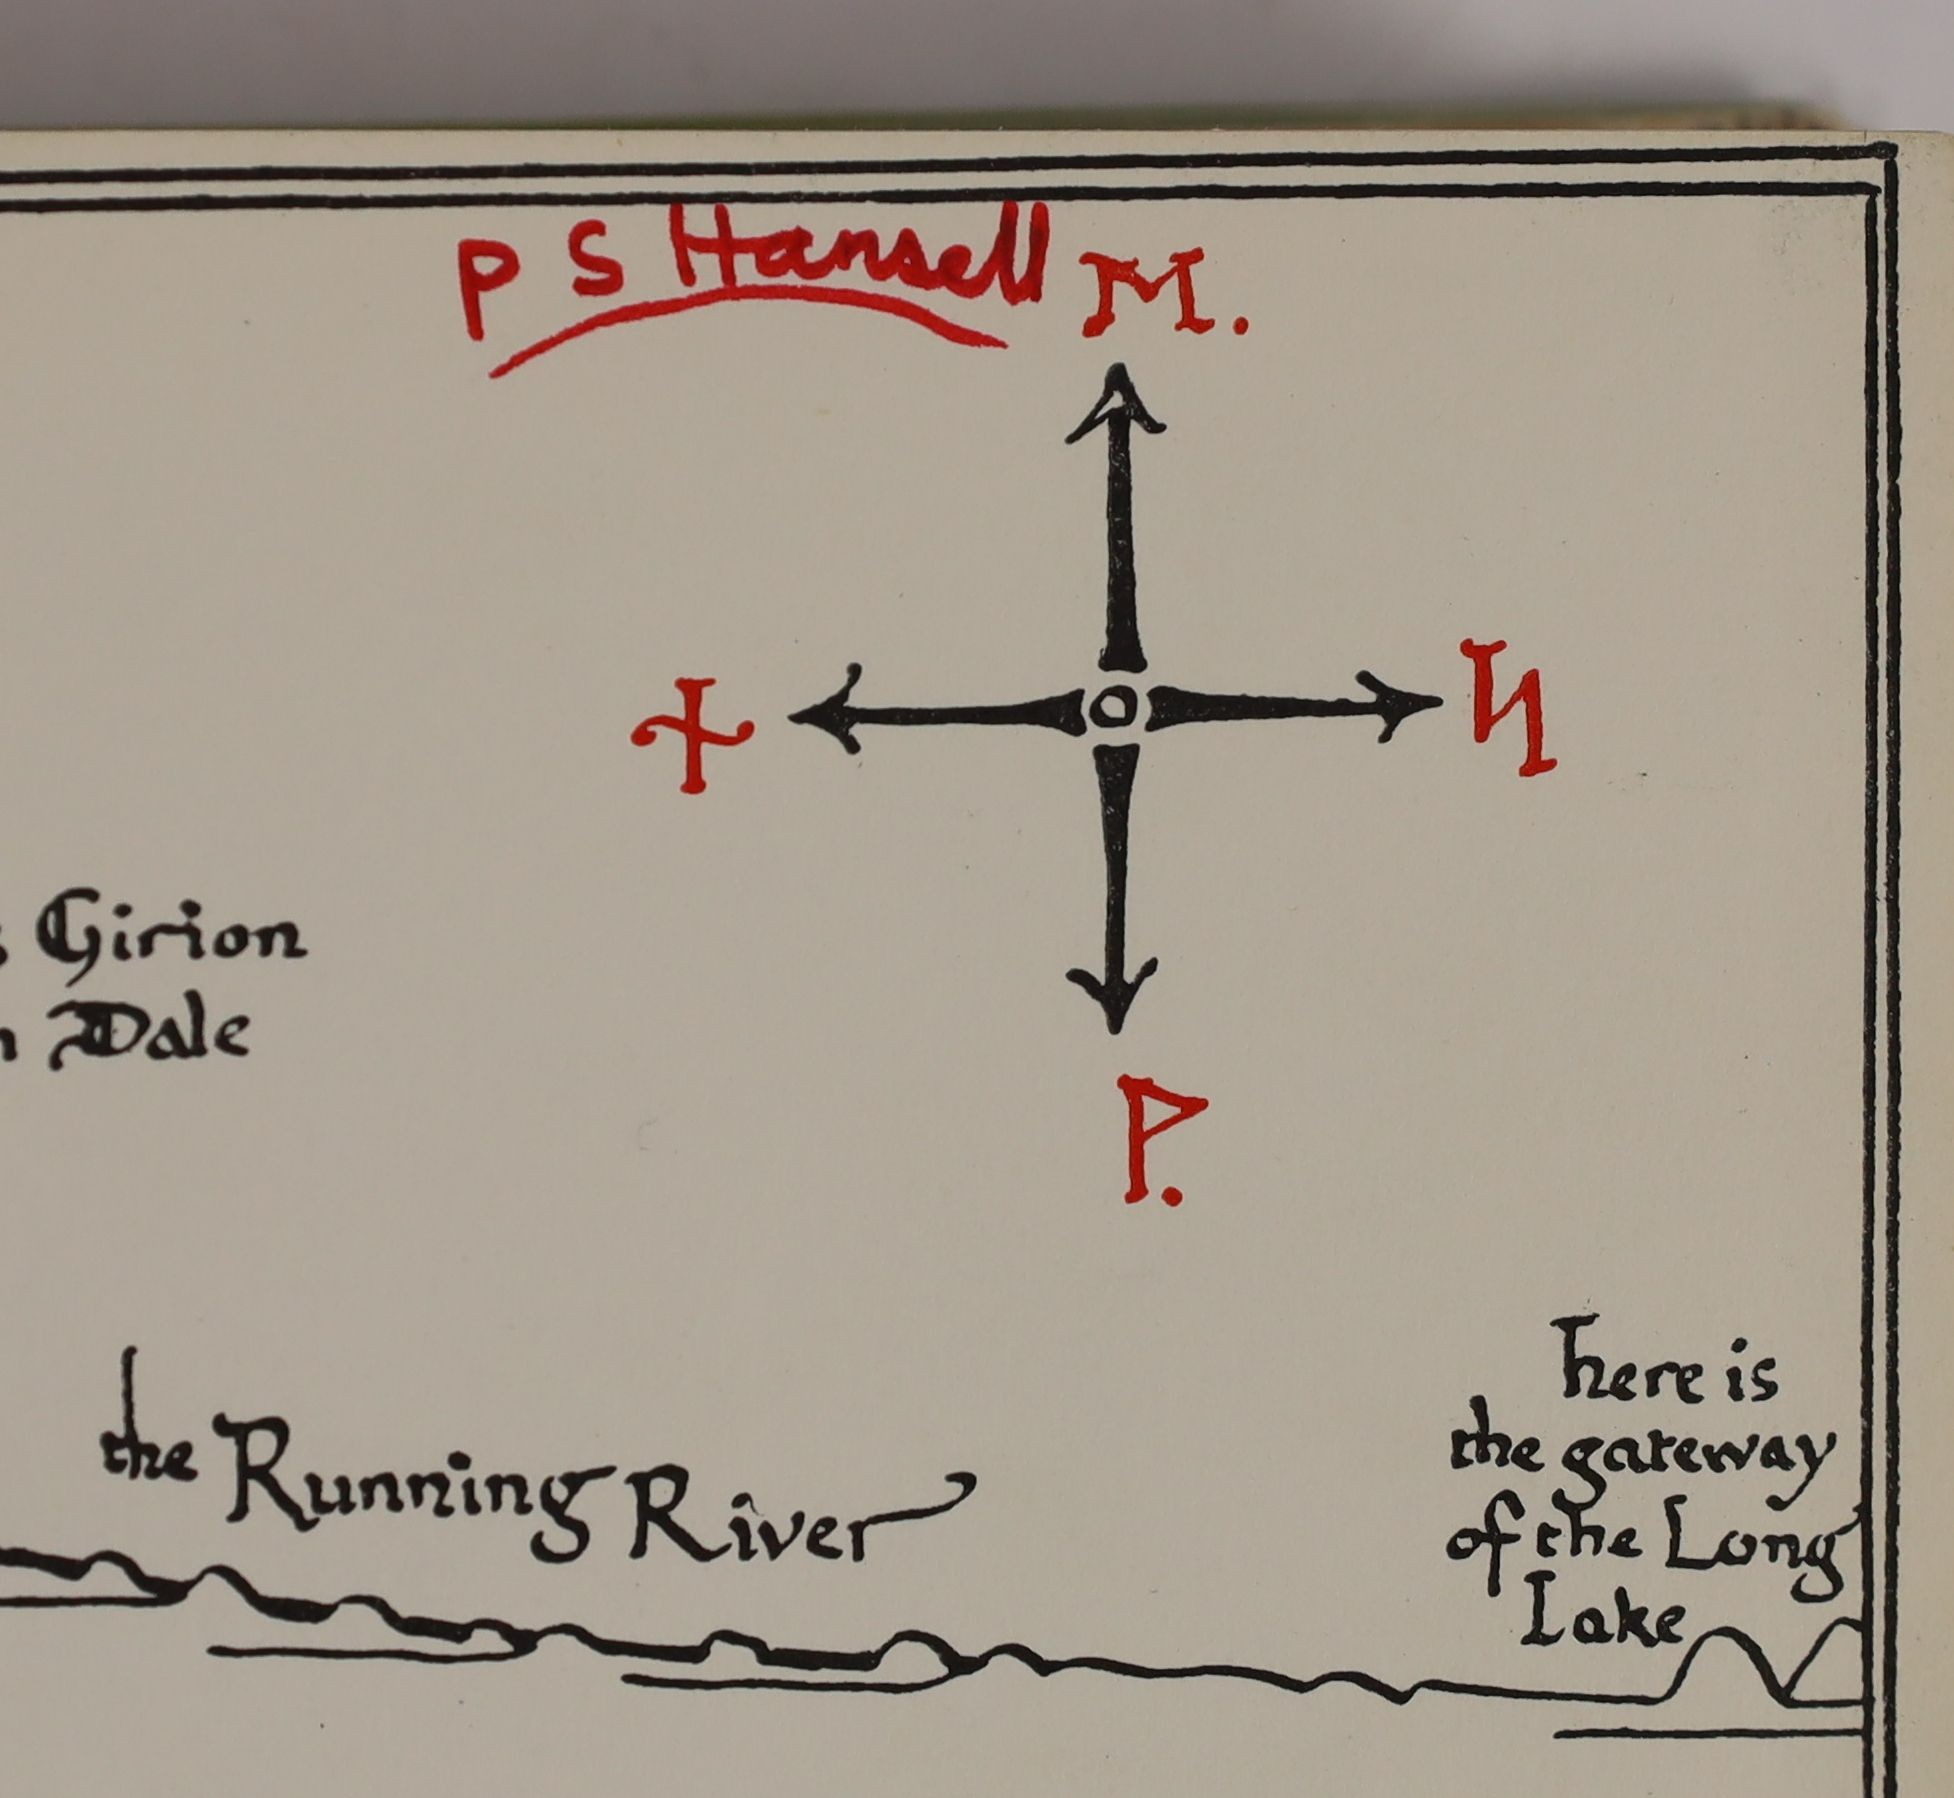 P S Hansell
ᛖ.
ᚾ ᛋ
ᚹ.
Girion
Dale
the Running River
here is
the gateway
of the Long
Lake